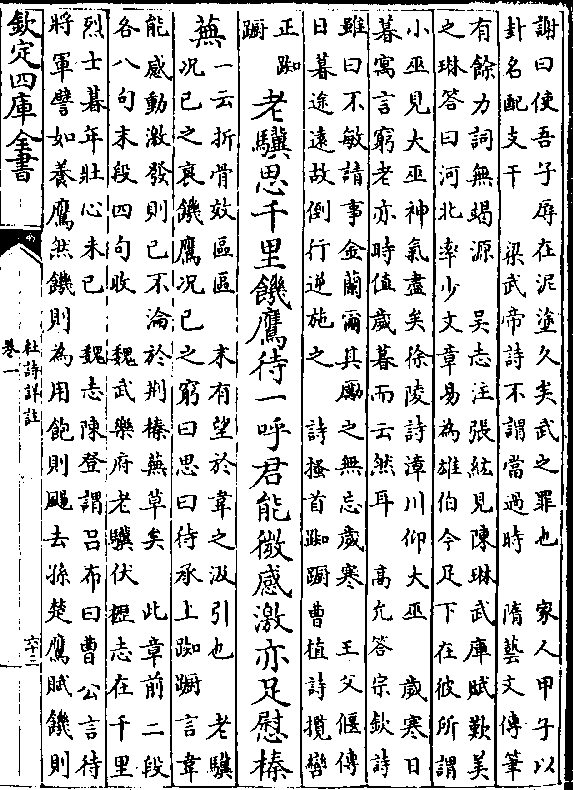 謝曰使吾子辱在泥塗久矣武之罪也　家人甲子以
卦名配支干　梁武帝詩不謂當過時　隋藝文傳筆
有餘力詞無竭源　吳志注張紘見陳琳武庫賦歎美
之琳答曰河北率少文章易為雄伯今足下在彼所謂
小巫見大巫神氣盡矣徐陵詩漳川仰大巫　歲寒日
暮寓言窮老亦時值歲暮而云然耳　高允答宗欽詩
雖曰不敏請事金蘭爾其勵之無忘歲寒　王父偃傳
日暮途遠故倒行逆施之　詩搔首踟蹰曹植詩攬轡
正踟
蹰
老驥思千里饑鷹待一呼君能微感激亦足慰榛
蕪
一云折骨效區區　末有望於韋之汲引也　老驥
況已之衰饑鷹況已之窮曰思曰待承上踟蹰言韋
能感動激發則已不淪於荆榛蕪草矣　此章前二段
各八句末段四句收　魏武樂府老驥伏櫪志在千里
烈士暮年壯心未已　魏志陳登謂呂布曰曹公言待
將軍譬如養鷹然饑則為用飽則颺去孫楚鷹賦饑則
欽定四庫全書
杜詩詳註
卷一